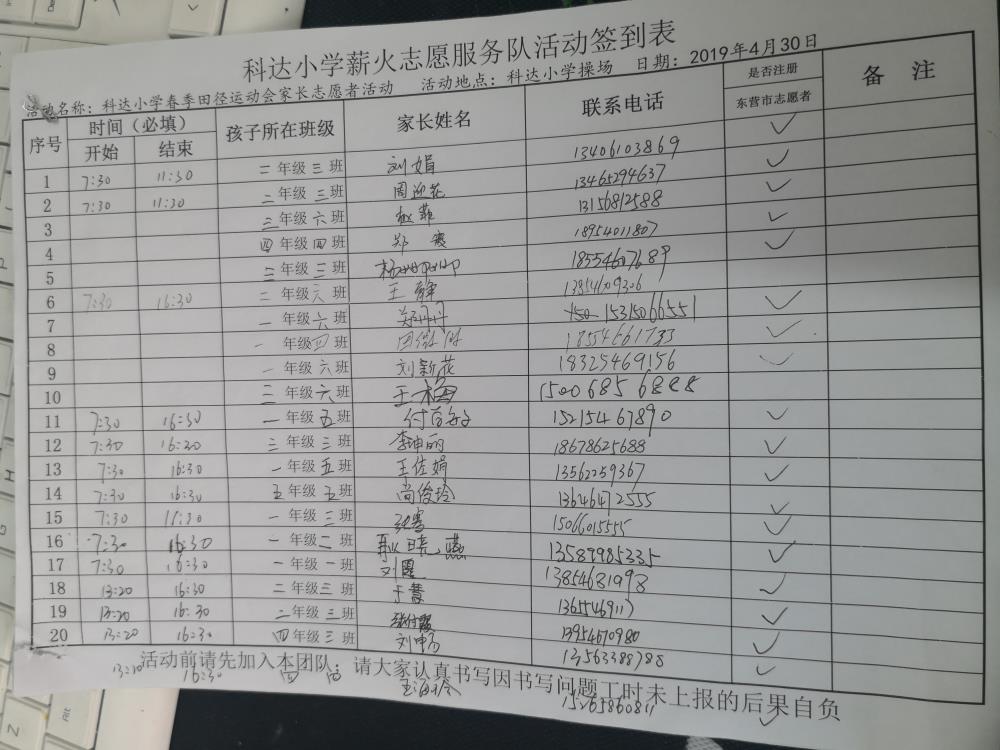 科达小学薪火志愿服务队活动签到表
活动名称：科达小学春季田径运动会家长志愿者活动 活动地点：科达小学操场 日期：2019年4月30日
序号 时间（必填） 孩子所在班级 家长姓名 联系电话 是否注册 备 注
开始 结束 东营市志愿者
1 7:30 11:30 二年级三班 刘娟 13406103869 ✓
2 7:30 11:30 二年级三班 周迎花 13465294637 ✓
3 三年级六班 赵菲 13156812588 ✓
4 四年级四班 郑霞 18954011807 ✓
5 三年级三班 18554607689 ✓
6 7:30 16:30 二年级六班 王静 13854609306
7 一年级六班 郑丹丹 15315066551 ✓
8 一年级四班 18554661733 ✓
9 一年级六班 刘新花 18325469156 ✓
10 三年级六班 王梅 15006856888
11 7:30 16:30 一年级五班 15215467890 ✓
12 7:30 16:20 三年级三班 李坤丽 18678625688 ✓
13 7:30 16:30 一年级五班 王佐娟 13562259367 ✓
14 7:30 16:30 五年级五班 尚俊玲 13646472555 ✓
15 7:30 11:30 一年级三班 15066015555 ✓
16 7:30 16:30 一年级二班 耿晓燕 13589985335 ✓
17 7:30 16:30 一年级一班 13854681998 ✓
18 13:20 16:30 二年级三班 于慧 ✓
19 13:20 16:30 二年级三班 13954670980 ✓
20 13:20 16:30 四年级三班 13563388788 ✓
活动前请先加入本团队；请大家认真书写因书写问题工时未上报的后果自负
13:20 16:30 四 四 15265860811 ✓